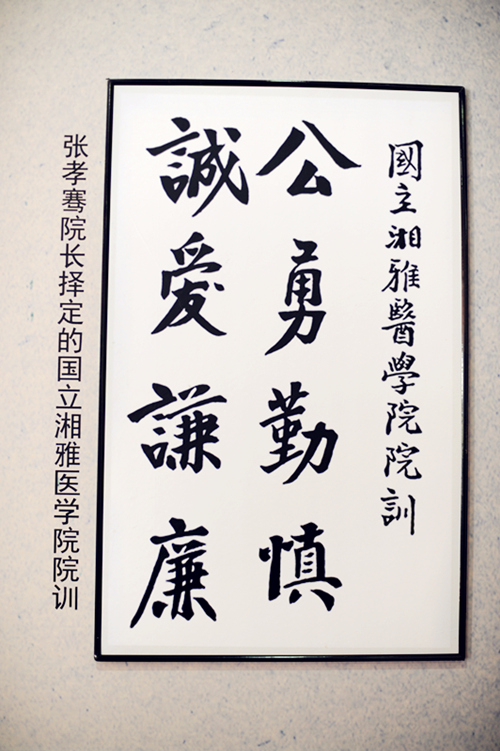 國立湘雅醫學院院訓
公勇勤慎
誠愛謙廉
张孝骞院长择定的国立湘雅医学院院训